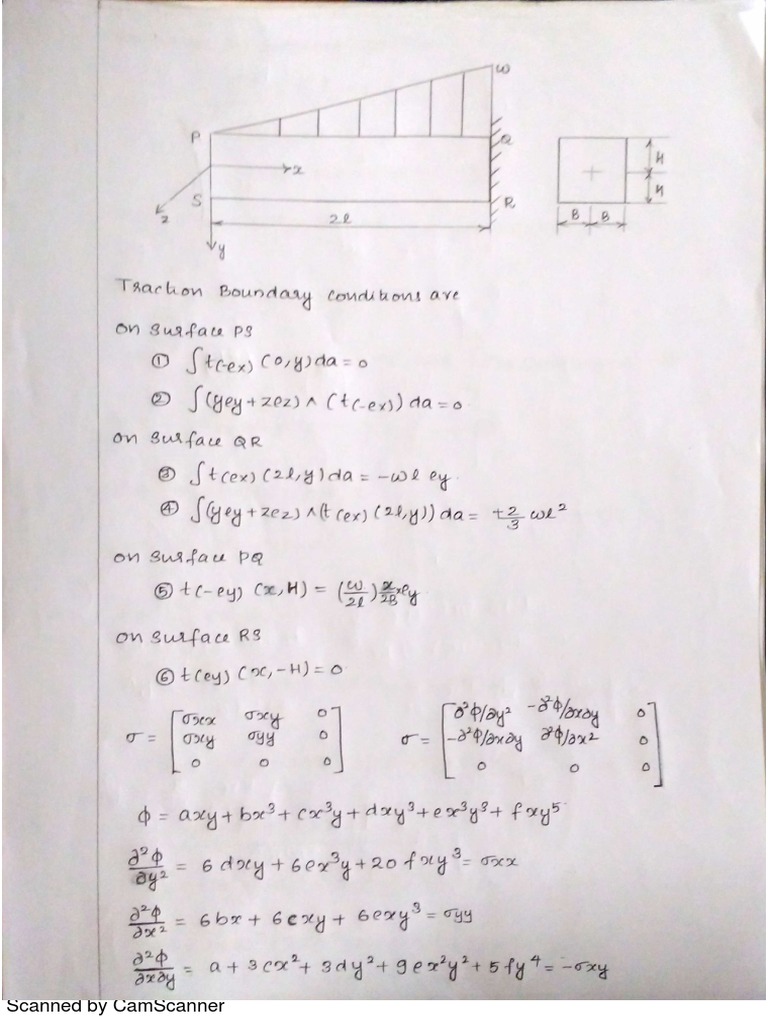 ω
P
Q
x
S
R
z
2l
y
H
H
B B
Traction Boundary conditions are
on surface PS
① ∫t(-ex) (0,y) da = 0
② ∫(yey + zez) ∧ (t(-ex)) da = 0
on surface QR
③ ∫t(ex) (2l,y) da = -ωl ey.
④ ∫(yey + zez) ∧ (t(ex) (2l,y)) da = +2/3 ωl²
on surface PQ
⑤ t(-ey) (x,H) = (ω/2l) x/2B ey
on surface RS
⑥ t(ey) (x,-H) = 0
σ = [σxx σxy 0; σxy σyy 0; 0 0 0] σ = [∂²φ/∂y² -∂²φ/∂x∂y 0; -∂²φ/∂x∂y ∂²φ/∂x² 0; 0 0 0]
φ = axy + bx³ + cx³y + dxy³ + ex³y³ + fxy⁵
∂²φ/∂y² = 6dxy + 6ex³y + 20fxy³ = σxx
∂²φ/∂x² = 6bx + 6cxy + 6exy³ = σyy
∂²φ/∂x∂y = a + 3cx² + 3dy² + 9ex²y² + 5fy⁴ = -σxy
Scanned by CamScanner